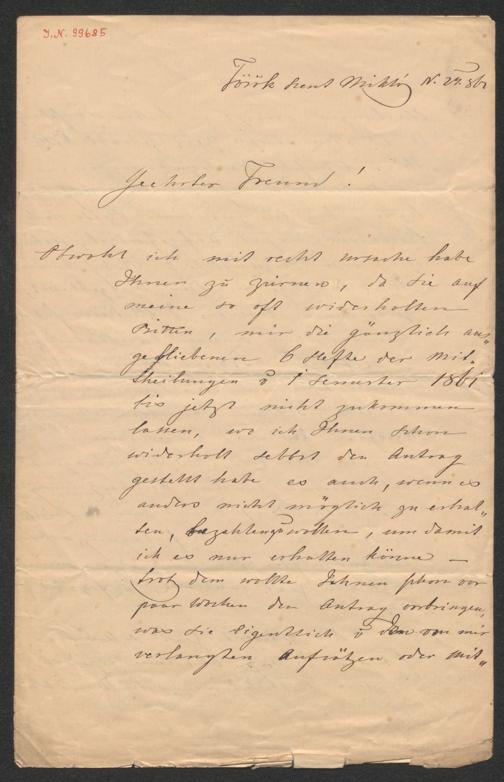 J.N. 99685
Török Szent Miklós N. 24. 861
Geehrter Freund!
Obwohl ich mit recht ursache habe
Ihnen zu zürnen, da Sie auf
meine so oft widerholten
Bitten, mir die gänzlich aus„
gebliebenen 6 Hefte der Mit„
theilungen v 1 Semester 1861
bis jetzt nicht zukommen
lassen, wo ich Ihnen schon
widerholt selbst den Antrag
gestellt habe es auch, wenn es
anders nicht möglich zu erhal„
ten, bezahlen zu wollen, um damit
ich es nur erhalten könne —
trotz dem wollte Ihnen schon vor
paar Wochen den Antrag vorbringen,
was Sie eigentlich v den von mir
verlangten Aufsätzen oder Mit„